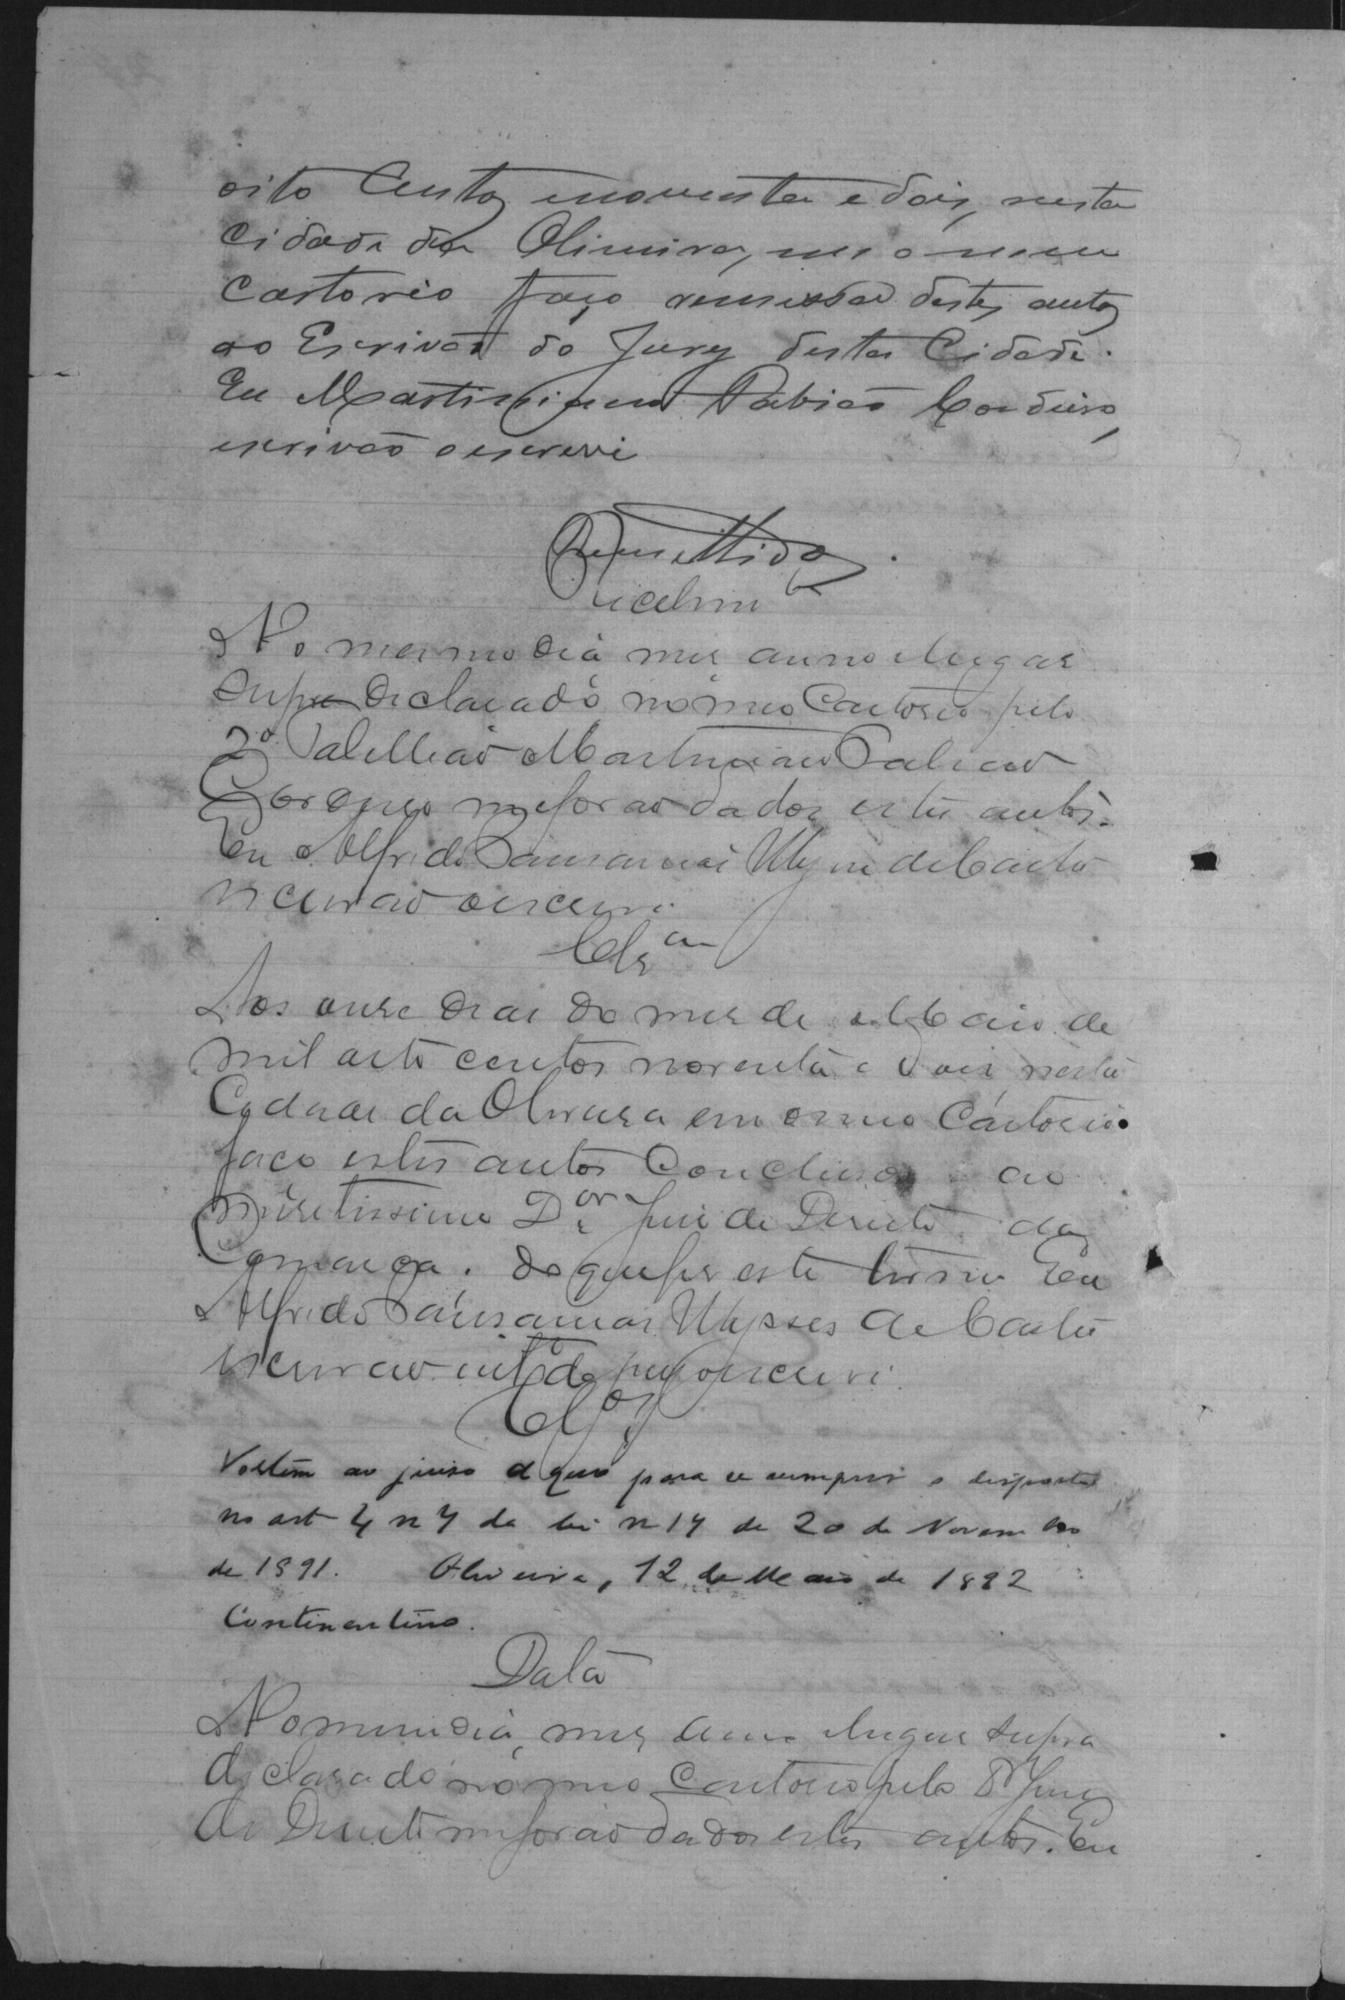 oito Centos enoventa e dois, nesta
Cidade da Oliveira, em o meu
Cartorio faço remissão destes autos
ao Escrivão do Jury desta Cidade.
Eu Martiniano Fabião Cordeiro,
escrivão o escrevi
Remettidos
No mesmo dia mes anno elugar
supra declarado no meo Cartorio pelo
2º Tabellião Martiniano Fabião
me forão dados estes autos.
Eu Alfredo Ulysses de Castro
escrivão oescrevi.
Clsam
Aos onse dias do mes de Maio de
mil oito centos noventa e dois nesta
Cidade da Oliveira em o meo Cartorio
faço estes autos Conclusos ao
Meretissimo Dor Juis de Direito da
Comarca. do que fis este termo Eu
Alfredo Ulysses de Castro
escrivão intº do jury oescrevi.
Clos
Voltem ao juiso a quo para se cumprir o disposto
no art 4 n 7 da lei n 17 de 20 de Novembro
de 1891. Oliveira, 12 de Maio de 1892
Continentino.
Data
No mesmo dia, mes anno elugar supra
declarado no meo Cartorio pelo Dr Juis
de Direito me forão dados estes autos. Eu